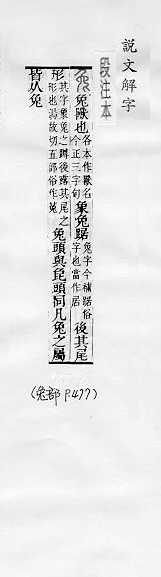 說文解字
段注本
兔獸也各本作獸名今正三字句象兔踞兔字今補踞俗字也當作居後其尾
形其字象兔之蹲後露其尾之形也湯故切五部俗作菟兔頭與㲋頭同凡兔之屬
皆从兔
(兔部 P.477)